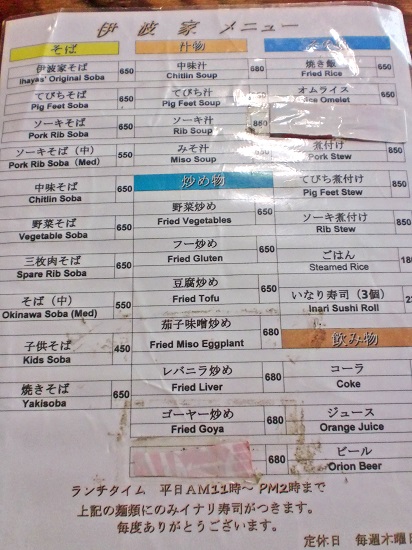 伊波家 メニュー
そば
伊波家そば 650
ihayas' Original Soba
てびちそば 650
Pig Feet Soba
ソーキそば 650
Pork Rib Soba
ソーキそば（中） 550
Pork Rib Soba (Med)
中味そば 650
Chitlin Soba
野菜そば 650
Vegetable Soba
三枚肉そば 650
Spare Rib Soba
そば（中） 550
Okinawa Soba (Med)
子供そば 450
Kids Soba
焼きそば 650
Yakisoba
汁物
中味汁 680
Chitlin Soup
てびち汁 850
Pig Feet Soup
ソーキ汁 850
Rib Soup
みそ汁 550
Miso Soup
炒め物
野菜炒め 650
Fried Vegetables
フー炒め 650
Fried Gluten
豆腐炒め 650
Fried Tofu
茄子味噌炒め 680
Fried Miso Eggplant
レバニラ炒め 680
Fried Liver
ゴーヤー炒め 680
Fried Goya
680
焼き飯
Fried Rice
オムライス
Rice Omelet
850
煮付け
Pork Stew
てびち煮付け
Pig Feet Stew
ソーキ煮付け
Rib Stew
ごはん
Steamed Rice
いなり寿司（3個）
Inari Sushi Roll
飲み物
コーラ
Coke
ジュース
Orange Juice
ビール
Orion Beer
ランチタイム 平日AM11時～PM2時まで
上記の麺類にのみイナリ寿司がつきます。
毎度ありがとうございます。
定休日 毎週木曜